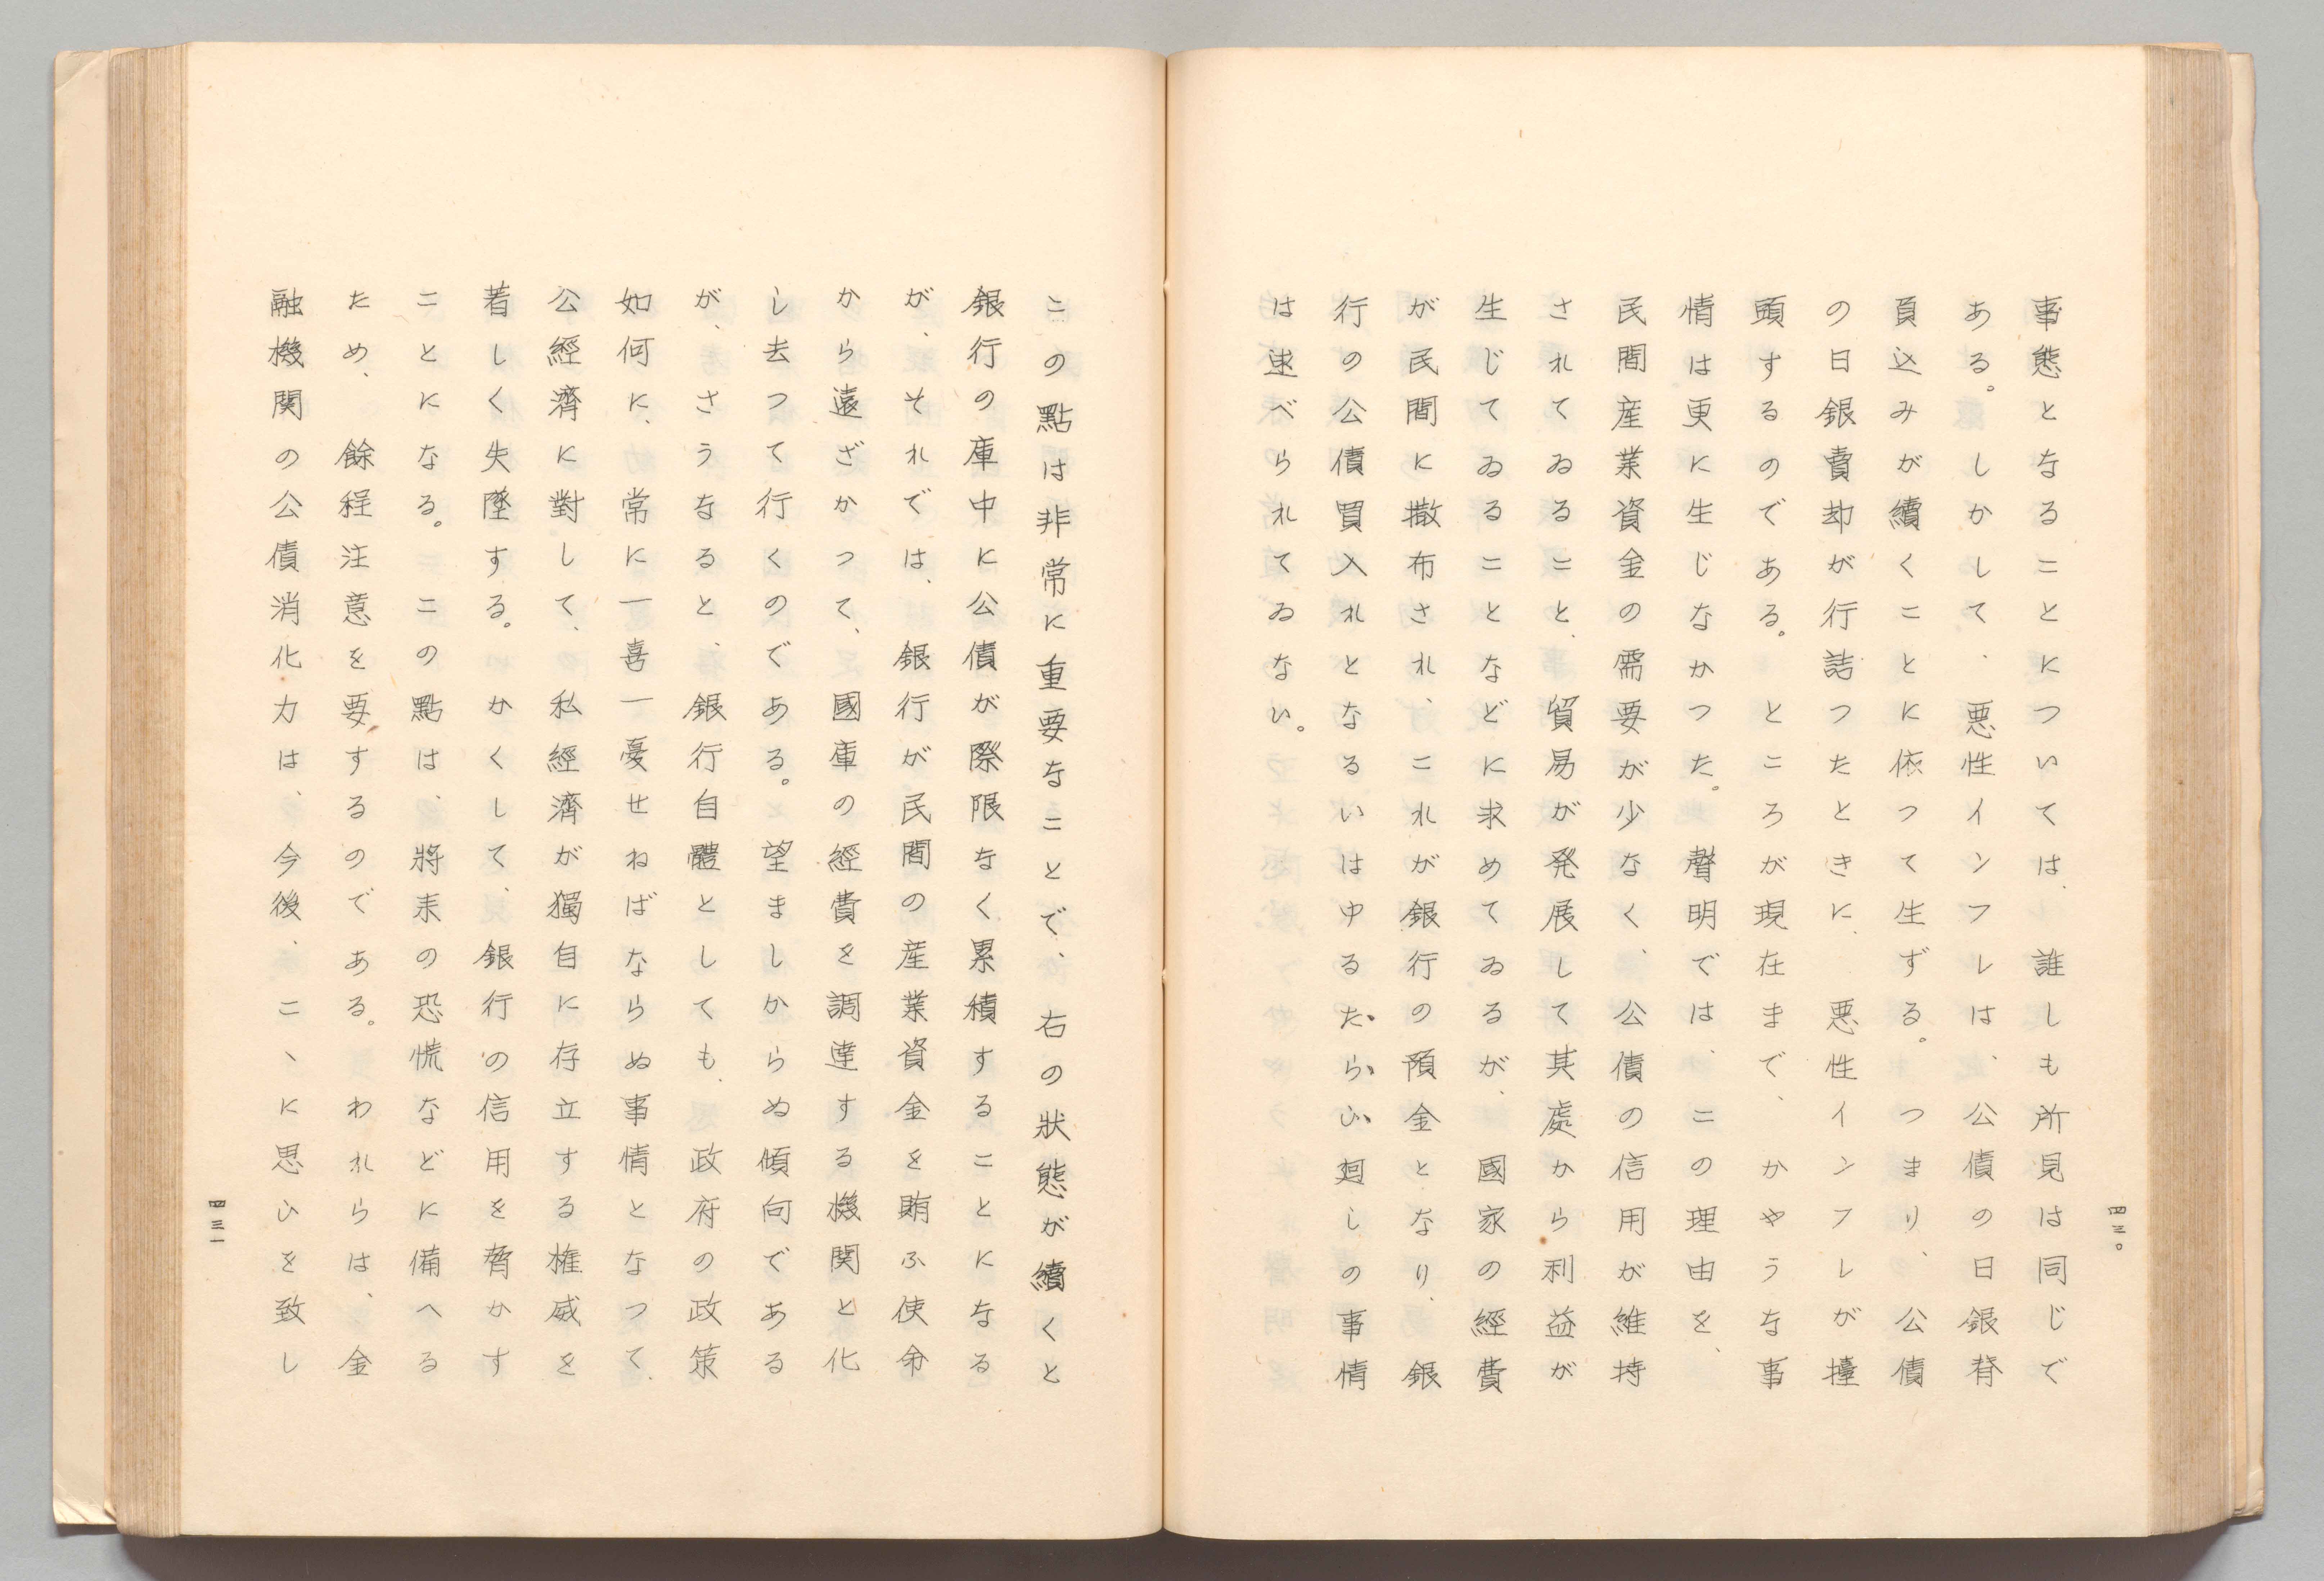 事態となることについては、誰しも所見は同じで
ある。しかして、悪性インフレは、公債の日銀脊
負込みが續くことに依つて生ずる。つまり、公債
の日銀賣却が行詰つたときに、悪性インフレが擡
頭するのである。ところが現在まで、かやうな事
情は更に生じなかつた。聲明では、この理由を、
民間産業資金の需要が少なく、公債の信用が維持
されてゐること、貿易が発展して其處から利益が
生じてゐることなどに求めてゐるが、國家の經費
が民間に撒布され、これが銀行の預金となり、銀
行の公債買入れとなるいは中るたらひ廻しの事情
は述べられてゐない。
四三〇
この點は非常に重要なことで、右の狀態が續くと
銀行の庫中に公債が際限なく累積することになる
が、それでは、銀行が民間の産業資金を賄ふ使命
から遠ざかつて、國庫の經費を調達する機関と化
し去つて行くのである。望ましからぬ傾向である
が、さうなると、銀行自體としても、政府の政策
如何に、常に一喜一憂せねばならぬ事情となつて、
公經濟に對して、私經濟が獨自に存立する権威を
著しく失墜する。かくして、銀行の信用を脅かす
ことになる。この點は、將来の恐慌などに備へる
ため、餘程注意を要するのである。われらは、金
融機関の公債消化力は、今後、こゝに思ひを致し
四三一